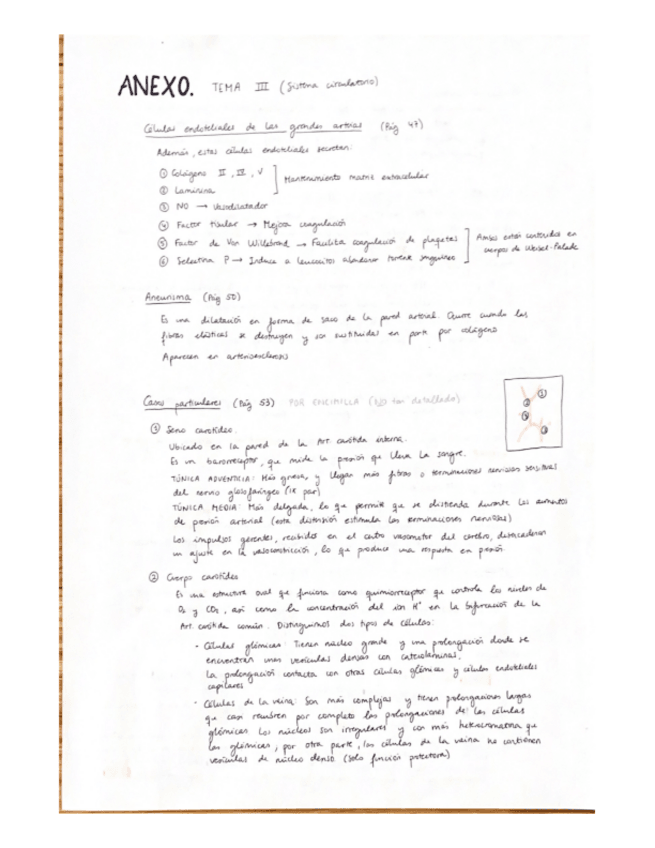 ANEXO. TEMA III (Sistema circulatorio)
Células endoteliales de las grandes arterias (Pág 47)
Además, estas células endoteliales secretan:
① Colágeno II, IV, V
② Laminina
Mantenimiento matriz extracelular
③ NO → Vasodilatador
④ Factor tisular → Mejora coagulación
⑤ Factor de Von Willebrand → Facilita coagulación de plaquetas
⑥ Selectina P → Induce a leucocitos abandonar torrente sanguíneo
Ambos están contenidos en
cuerpos de Weibel-Palade
Aneurisma (Pág 50)
Es una dilatación en forma de saco de la pared arterial. Ocurre cuando las
fibras elásticas se destruyen y son sustituidas en parte por colágeno
Aparecen en arteriosclerosis
Casos particulares (Pág 53) POR ENCIMILLA (No tan detallado)
① Seno carotídeo.
Ubicado en la pared de la Art. carótida interna.
Es un barorreceptor, que mide la presión que lleva la sangre.
TÚNICA ADVENTICIA: Más gruesa, y llegan más fibras o terminaciones nerviosas sensitivas
del nervio glosofaríngeo (IX par)
TÚNICA MEDIA: Más delgada, lo que permite que se distienda durante los aumentos
de presión arterial (esta distensión estimula las terminaciones nerviosas)
Los impulsos recibidos en el centro vasomotor del cerebro, desencadenan
un ajuste en la vasoconstricción, lo que produce una respuesta en presión.
② Cuerpo carotídeo
Es una estructura oval que funciona como quimiorreceptor que controla los niveles de
O₂ y CO₂, así como la concentración del ion H⁺ en la bifurcación de la
Art. carótida común. Distinguimos dos tipos de células:
· Células glómicas: Tienen núcleo grande y una prolongación donde se
encuentran unas vesículas densas con catecolaminas.
La prolongación contacta con otras células glómicas y células endoteliales
capilares
· Células de la vaina: Son más complejas y tienen prolongaciones largas
que casi recubren por completo las prolongaciones de las células
glómicas. Los núcleos son irregulares y con más heterocromatina que
las glómicas, por otra parte, las células de la vaina no contienen
vesículas de núcleo denso. (solo función protectora)